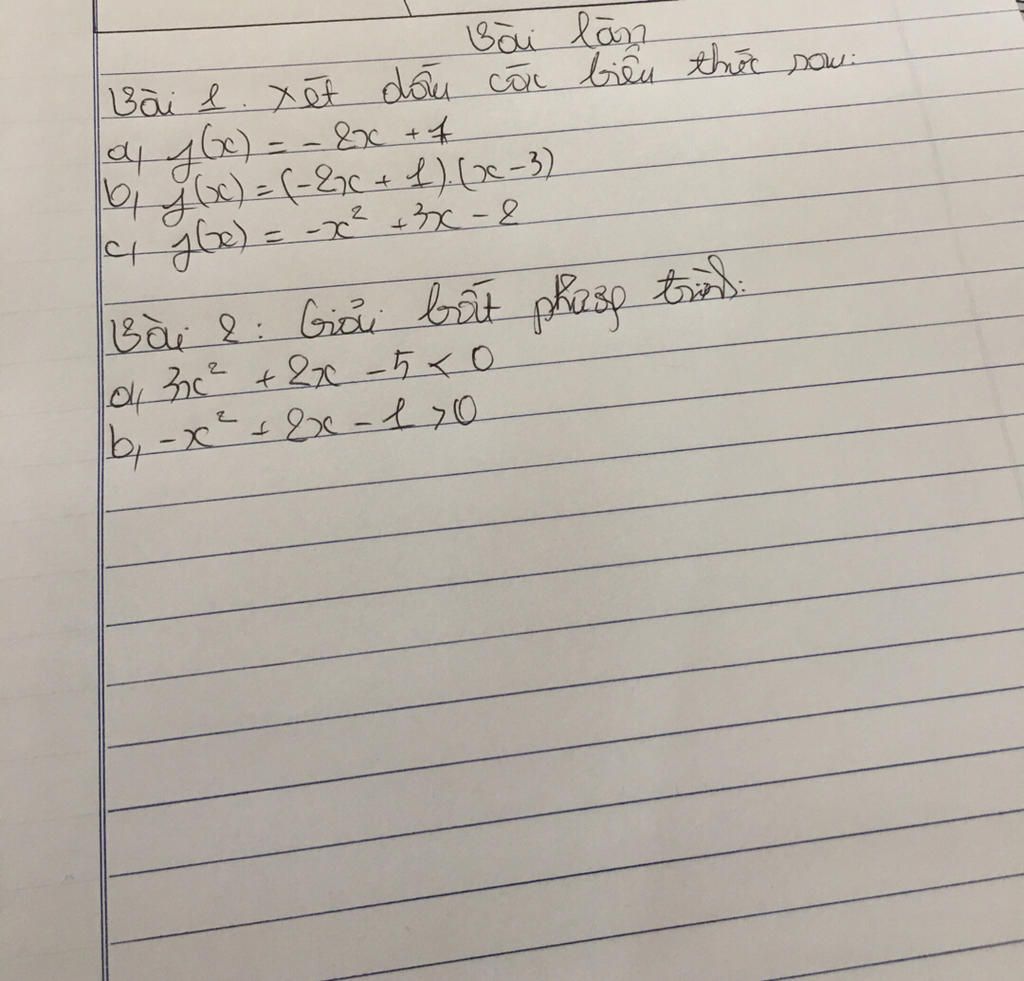 Bài làm
Bài 1. Xét dấu các biểu thức sau:
a, f(x) = -2x + 1
b, f(x) = (-2x + 1).(x - 3)
c, f(x) = -x² + 3x - 2
Bài 2: Giải bất phương trình:
a, 3x² + 2x - 5 < 0
b, -x² + 2x - 1 > 0